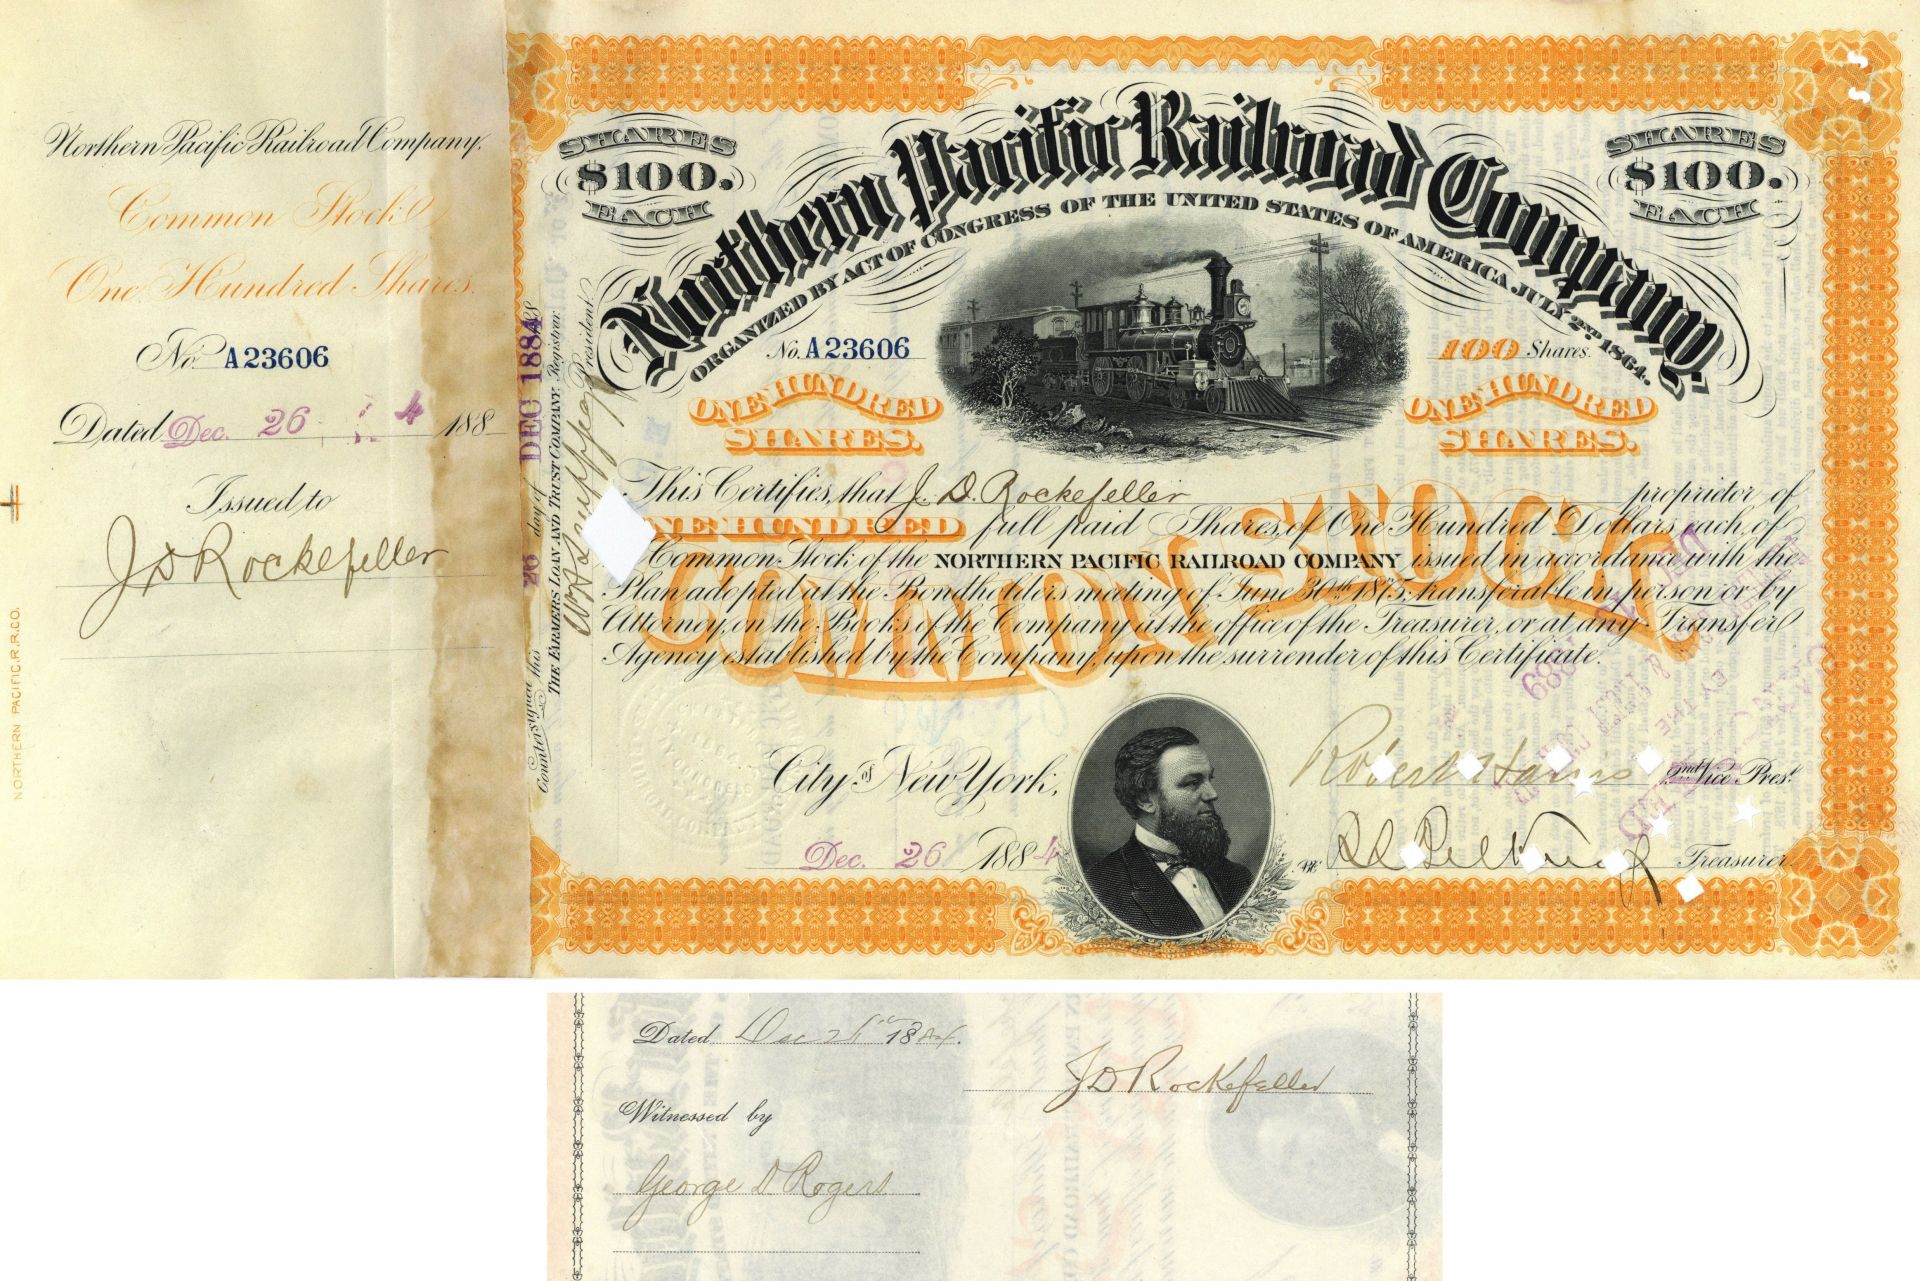 Northern Pacific Railroad Company.
Common Stock
One Hundred Shares.
No. A23606
Dated Dec. 26 4 188
Issued to
J D Rockefeller
NORTHERN PACIFIC R.R.CO.
Countersigned this 26 day of DEC 1884 188
THE FARMERS LOAN AND TRUST COMPANY, Registrar.
President
SHARES
$100.
EACH
SHARES
$100.
EACH
Northern Pacific Railroad Company.
ORGANIZED BY ACT OF CONGRESS OF THE UNITED STATES OF AMERICA, JULY 2ND 1864.
No. A23606
100 Shares.
ONE HUNDRED
SHARES.
ONE HUNDRED
SHARES.
COMMON STOCK
This Certifies, that J. D. Rockefeller proprietor of
ONE HUNDRED full paid Shares, of One Hundred Dollars each, of
Common Stock of the NORTHERN PACIFIC RAILROAD COMPANY issued in accordance with the
Plan adopted at the Bondholders meeting of June 30th 1875, transferable in person or by
Attorney, on the Books of the Company at the office of the Treasurer, or at any Transfer
Agency established by the Company, upon the surrender of this Certificate.
City of New York,
Dec. 26 1884
Robert Harris 2nd Vice Prest.
Treasurer
Dated Dec 26th 1884.
J D Rockefeller
Witnessed by
George D Rogers